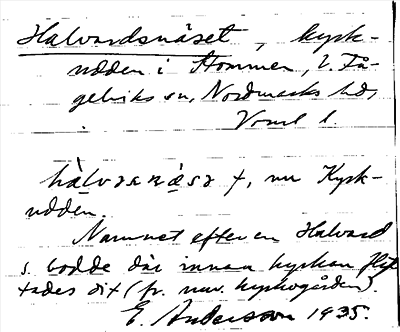 Halvardsnäset, kyrk-
udden i Stommen, V. Få-
gelviks sn, Nordmarks hd,
Verml l.
hàlvasnàsa †, nu Kyrk-
udden.
Namnet efter en Halvard
s. bodde där innan kyrkan flyt-
tades dit (fr. nuv. kyrkogården).
E. Anderson 1935.